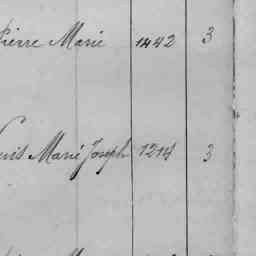 Pierre Marie 1442 3
Louis Marie Joseph 1214 3